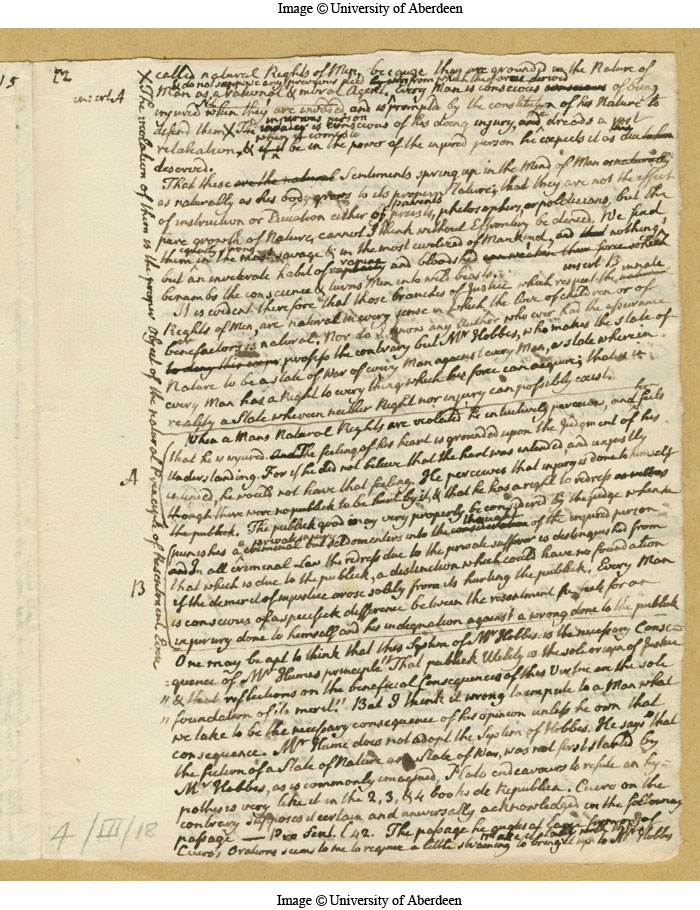 Image © University of Aberdeen
15
22
called natural Rights of Men, because they are grounded in the Nature of
& do not suppose any previous deed by men from which they are derived
Man as a rational & moral Agent, Every Man is conscious of being
insert A
injured when they are invaded and is prompted by the constitution of his Nature to
injurious person
defend them X The invader is conscious of his doing injury, and dreads a just
when it comes to
retaliation, & if it be in the power of the injured person he expects it as due
deserved.
X The violation of them is the proper Object of the natural Principle of Resentment
That these Sentiments spring up in the Mind of Man
as naturally as his body grows to its proper Stature; that they are not the effect
parents
of instruction or Education either of priests, philosophers, or politicians, but the
pure growth of Nature, cannot I think without Effrontery be denied. We find
equally strong
them in the most savage & in the most civilized of Mankind, and nothing
rapine
but an inveterate habit of and bloodshed
benumbs the conscience & turns Men into wild beasts.
insert B innate
It is evident therefore that those branches of Justice which respect the
Rights of Men, are natural in every sense in which the love of children or of
benefactors is natural. Nor do I know any Author who ever had the assurance
to deny this profess the contrary but Mr Hobbes, who makes the state of
Nature to be a state of War of every Man against every Man, a state wherein
every Man has a Right to every thing which his force can acquire; that is in
reality a State wherein neither Right nor injury can possibly exist.
When a Mans Natural Rights are violated he intuitively perceives, and he feels
that he is injured. The feeling of his heart is grounded upon the Judgment of his
Understanding. For if he did not believe that the hurt was intended, and unjustly
intended, he would not have that feeling. He perceives that injury is done to himself
A
though there were no publick to be hurt by it, & that he has a right to redress
the publick. The publick good may very properly be considered by the judge when he
punishes a criminal but seldom enters into the thought of the injured person
private injury
In all criminal Law the redress due to the private sufferer is distinguished from
that which is due to the publick, a distinction which could have no foundation
B
if the demerit of injustice arose solely from its hurting the publick, Every Man
is conscious of a specifick difference between the resentment he feels for an
injury done to himself and his indignation against a wrong done to the publick
One may be apt to think that this System of Mr Hobbes is the necessary Conse-
=quence of Mr Humes principle "That publick Utility is the sole origin of Justice
" & that reflections on the beneficial Consequences of this Virtue are the sole
" foundation of its merit." But I think it wrong to impute to a Man what
we take to be the necessary consequence of his opinion unless he own that
consequence. Mr Hume does not adopt the System of Hobbes. He says "that
the fiction of a State of Nature as a State of War, was not first started by
Mr Hobbes, as is commonly imagined, Plato endeavours to refute an hy-
pothesis very like it in the 2, 3, & 4 books de Republica. Cicero on the
contrary supposes it certain and universally acknowledged in the following
passage — Pro Sext. l 42. The passage he quotes
Cicero's Orations seems to me to require a little straining to bring it up to Mr Hobbes
4/III/18
Image © University of Aberdeen